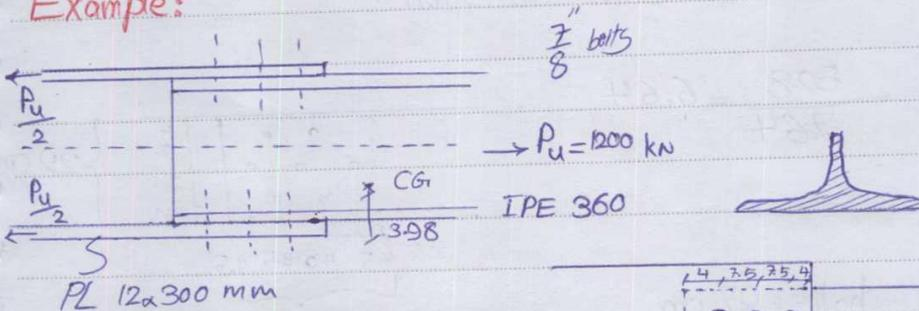 Example:
7/8" bolts
Pu/2
→ Pu = 1200 kN
Pu/2
CG
IPE 360
3.98
PL 12x300 mm
4, 7.5, 7.5, 4